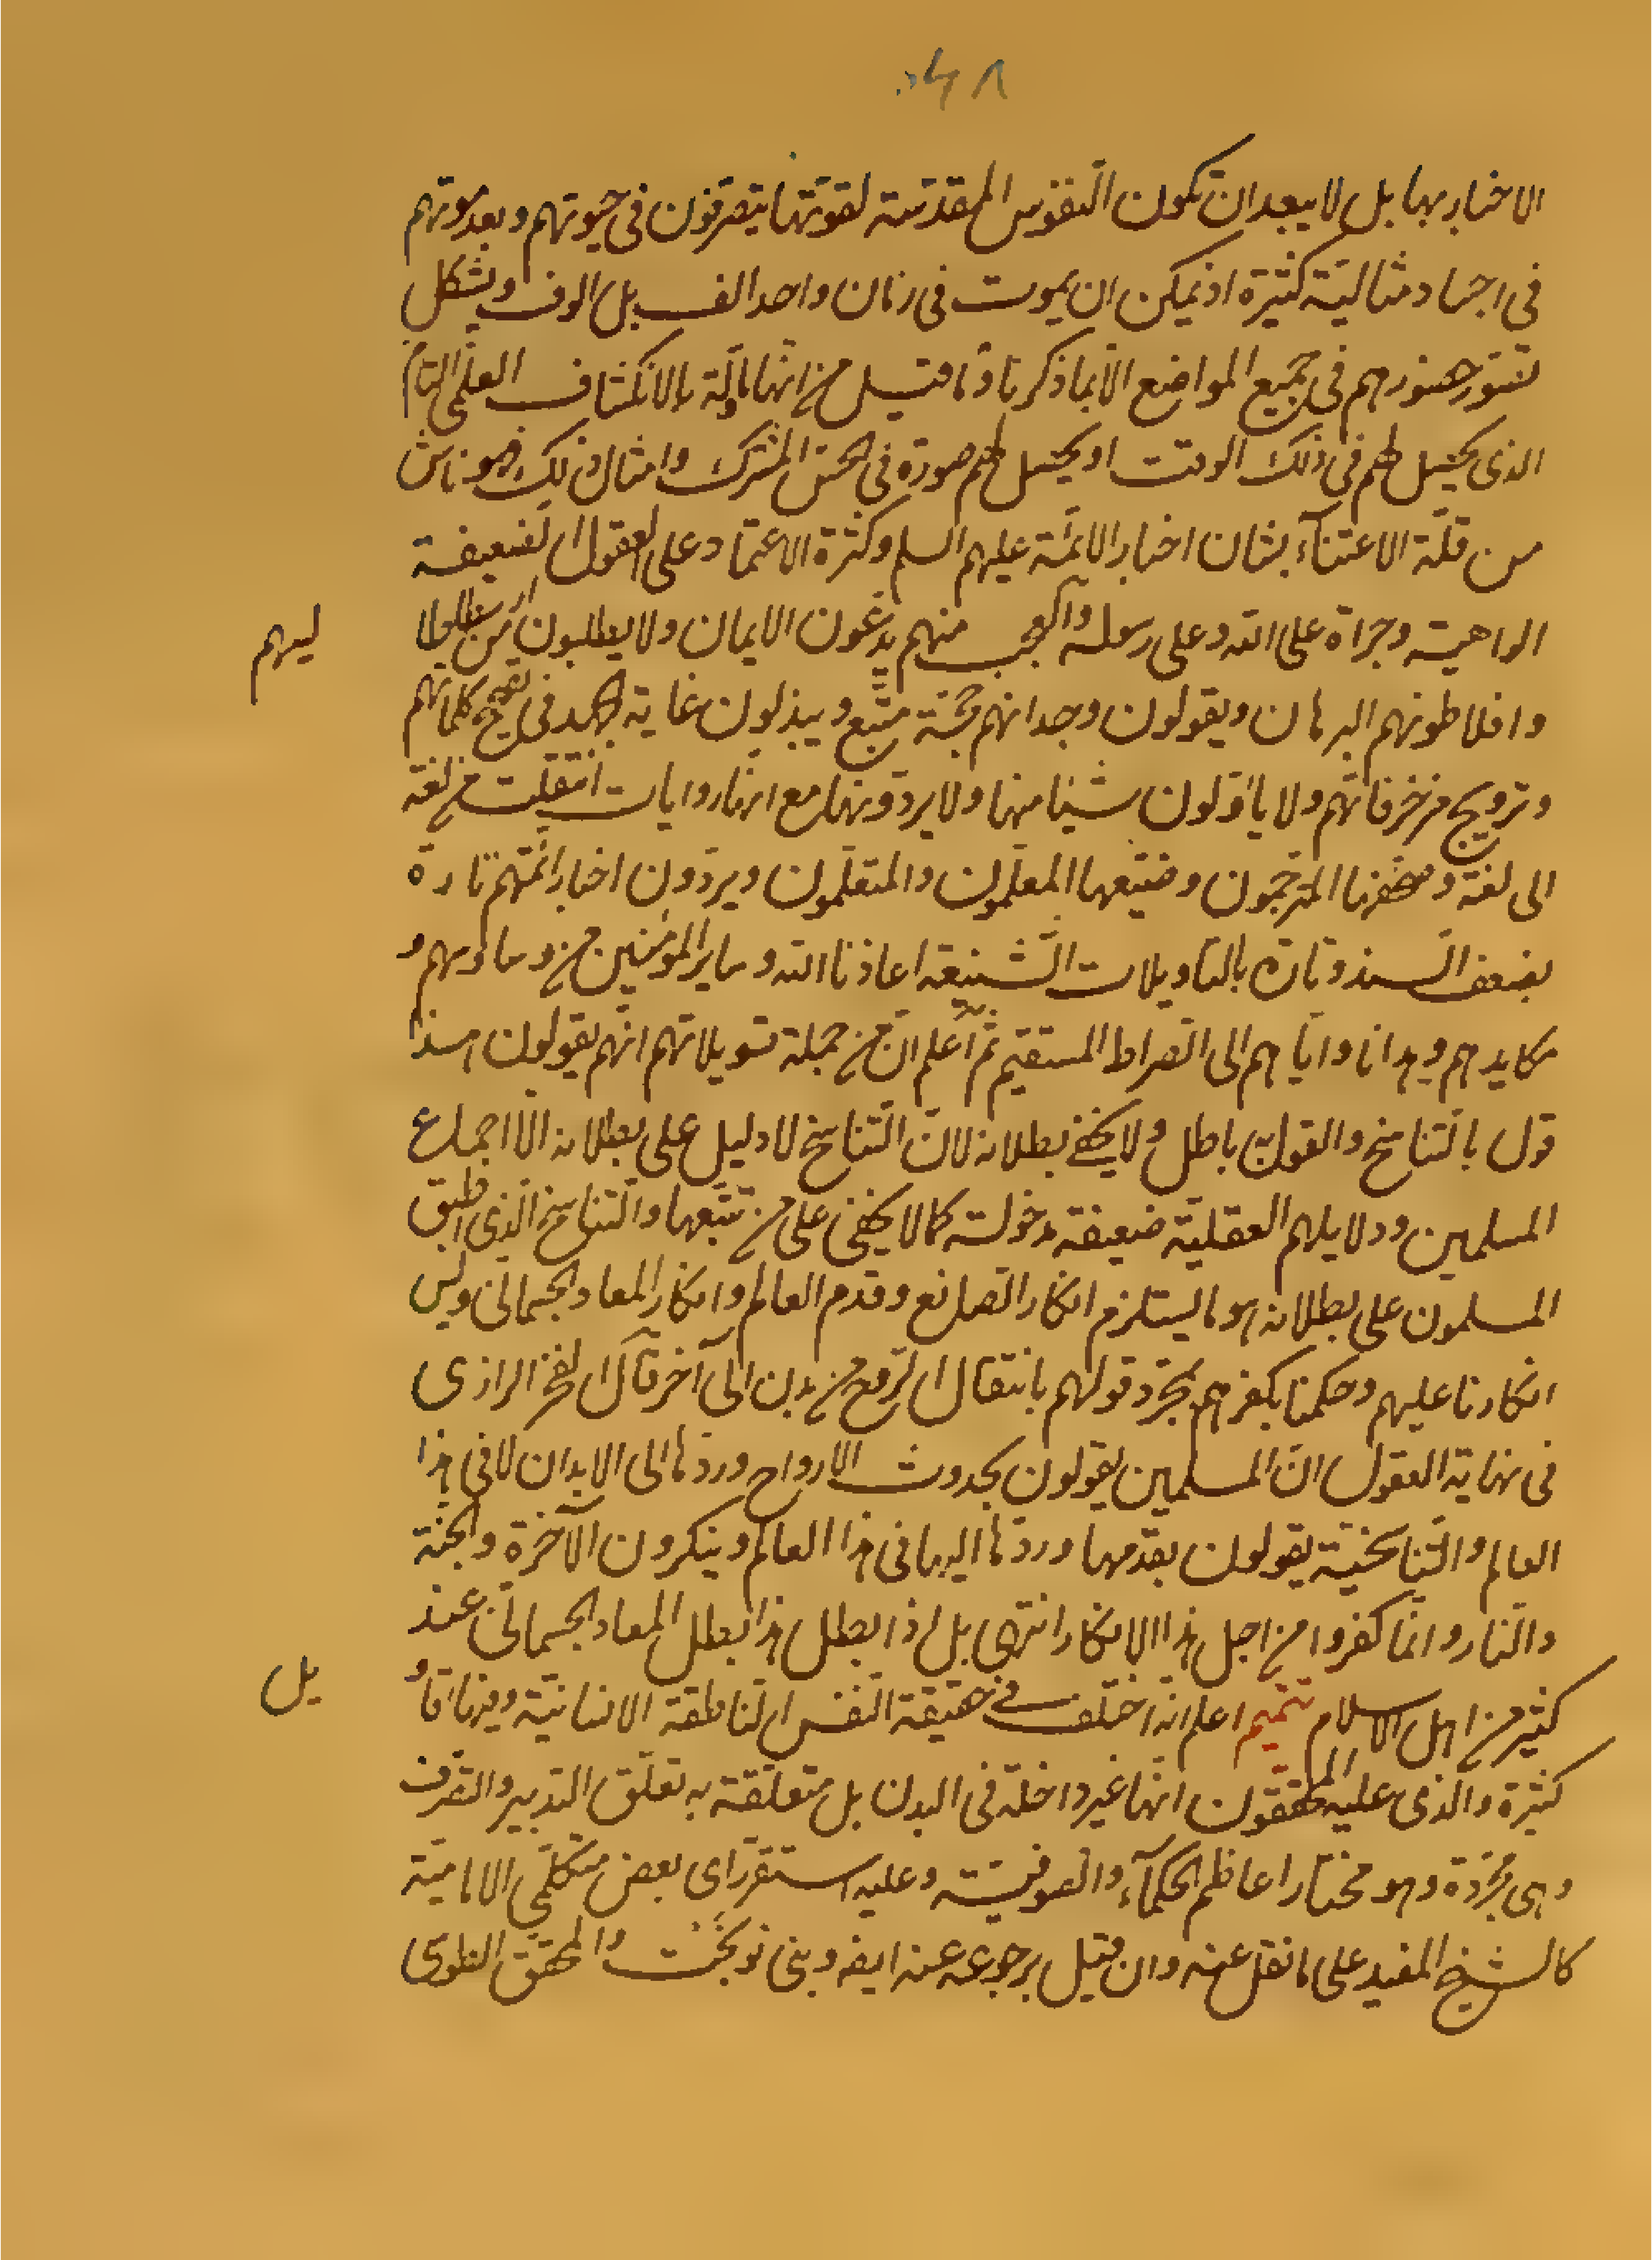 الاخبار بها بل لا يبعد ان تكون النفوس المقدّسة لقوّتها يتصرّفون فى حيوتهم و بعد موتهم
فى اجساد مثاليّة كثيرة اذ يمكن ان يموت فى زمان واحد الف بل الوف و يشكل
تصوّر حضورهم فى جميع المواضع الّا بما ذكرنا و ما قيل من انّها ماوّلة بالانكشاف العلمى التام
الذى يحصل لهم فى ذلك الوقت او يحصل لهم صورة فى الحسّ المشترك و امثال ذلك فهو ناش
من قلّة الاعتنآء بشان اخبار الائمّة عليهم السلم و كثرة الاعتماد على العقول الضعيفة
الواهية و جراة على الله و على رسوله و العجب منهم يدّعون الايمان و لا يطلبون من ارسطاطا
ليهم
و افلاطونهم البرهان و يقولون وجدانهم حجّة متّبع و يبذلون غاية الجهد فى تصحيح كلماتهم
و ترويج مزخرفاتهم و لا يأوّلون شيئا منها و لا يردّونها مع انها روايات انتقلت من لغة
الى لغة و صحّفها المترجمون و ضيّعها المعلّمون و المتعلّمون و يردّون اخبار ائمّتهم تارة
بضعف السند و تارة بالتاويلات الشنيعة اعاذنا الله و ساير المؤمنين من وساوسهم و
مكايدهم و هدانا و ايّاهم الى الصراط المستقيم ثمّ اعلم انّ من جملة تسويلاتهم انّهم يقولون هذا
قول بالتناسخ و القول به باطل و لا يخفى بطلانه لانّ التناسخ لا دليل على بطلانه الّا اجماع
المسلمين و دلايلهم العقليّة ضعيفة مدخولة كما لا يخفى على من تتبّعها و التناسخ الّذى اطبق
المسلمون على بطلانه هو ما يستلزم انكار الصانع و قدم العالم و انكار المعاد الجسمانى و ليس
انكارنا عليهم و حكمنا بكفرهم بمجرّد قولهم بانتقال الرّوح من بدن الى آخر قال الفخر الرازى
فى نهاية العقول انّ المسلمين يقولون بحدوث الارواح و ردّها الى الابدان لا فى هذا
العالم و التناسخيّة يقولون بقدمها و ردّها اليها فى هذا العالم و ينكرون الآخرة و الجنّة
و النّار و انّما كفروا من اجل هذا الانكار انتهى بل اذا بطل هذا بطل المعاد الجسمانىّ عند
كثير من اهل الاسلام تتميم اعلم انّه اختلف فى حقيقة النّفس الناطقة الانسانيّة و فيها اقا و
يل
كثيرة و الّذى عليه المحققون انّها غير داخلة فى البدن بل متعلّقة به تعلّق التدبير و التصرف
و هى مجرّدة و هو مختار اعاظم الحكمآء و الصوفيّة و عليه استقرّ راى بعض متكلّمى الاماميّة
كالشيخ المفيد على ما نقل عنه و ان قيل برجوعه عنه ايضا و بنى نوبخت و المحقق الطوسى